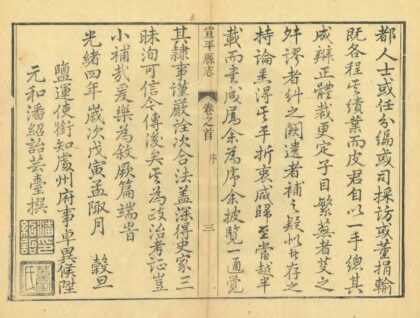 都人士或任分編或司採訪或董捐輸
既各程其績業而皮君自以一手總其
成辯正體裁更定子目繁蕪者芟之
舛謬者糾之闕遺者補之疑似者存之
持論悉得其平折衷咸歸至當越半
載而書成屬余為序余披覽一通覺
宣平縣志
卷之首
序
三
其隸事謹嚴詮次合法蓋深得史家三
昧洵可信今傳後矣其為政治考証豈
小補哉爰樂為敘厥篇端旹
光緒四年歲次戊寅孟陬月 穀旦
鹽運使銜知處州府事卓異候陞
元和潘紹詒芸臺撰